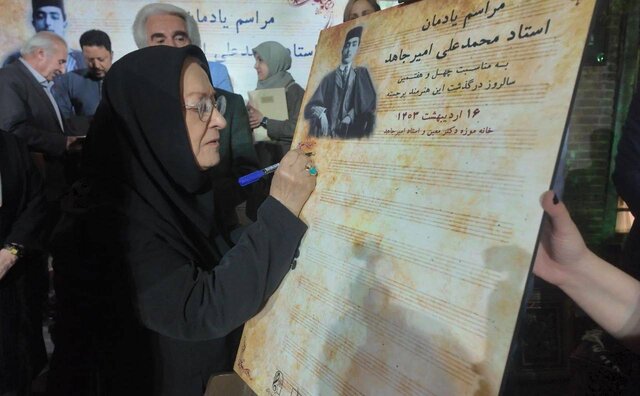 مراسم یادمان
استاد محمدعلی امیرجاهد
مراسم یادمان
استاد محمدعلی امیرجاهد
به مناسبت چهل و هفتمین
سالروز درگذشت این هنرمند برجسته
۱۶ اردیبهشت ۱۴۰۳
خانه موزه دکتر معین و استاد امیرجاهد